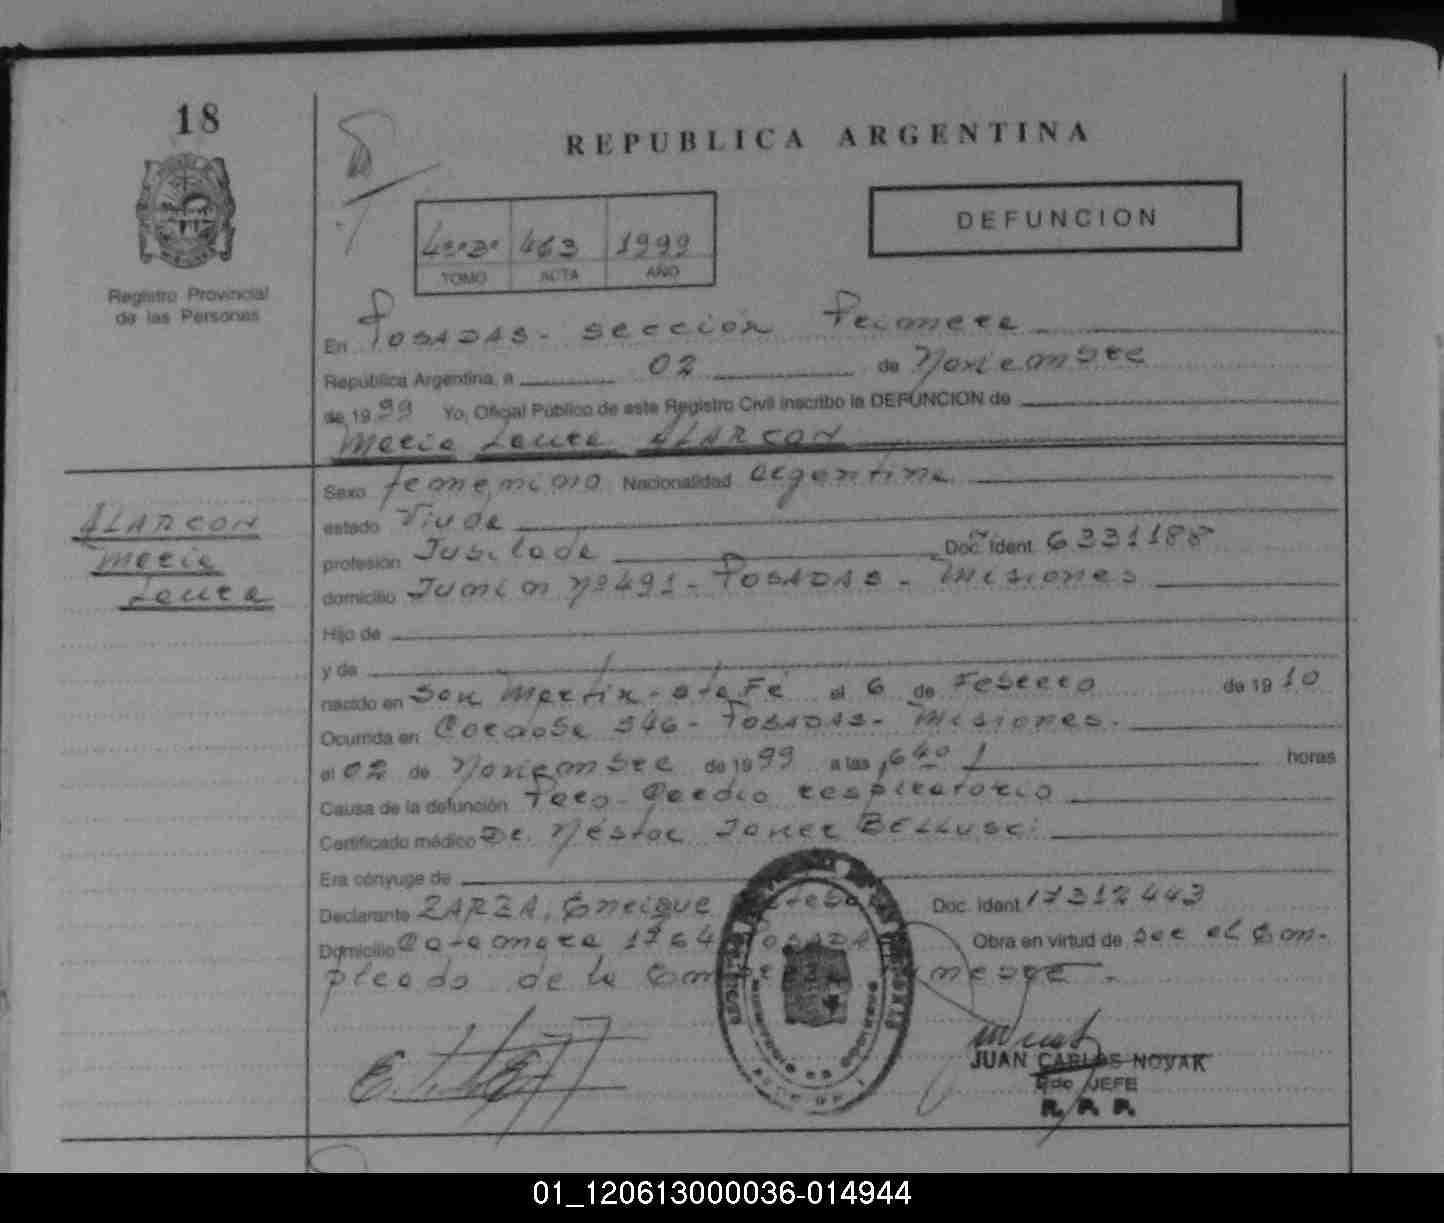 18
REPUBLICA ARGENTINA
DEFUNCION
463 1999
TOMO ACTA AÑO
Registro Provincial
de las Personas
En Posadas - Sección Primera
República Argentina, a 02 de Noviembre
de 1999 Yo, Oficial Público de este Registro Civil inscribo la DEFUNCION de
Maria Laura ALARCON
ALARCON
Maria
Laura
Sexo femenino Nacionalidad argentina
estado Viuda
profesión Jubilada Doc. Ident. 6331188
domicilio Junin Nº 491 - Posadas - Misiones
Hijo de
y de
nacido en San Martin - Sta Fé el 6 de Febrero de 1910
Ocurrida en Cordoba 346 - Posadas - Misiones.
el 02 de Noviembre de 1999 a las 1640 horas
Causa de la defunción Paro Cardio respiratorio
Certificado médico Dr. Néstor Javier BELLUSCI
Era cónyuge de
Declarante ZARZA, Enrique Doc. Ident. 17312443
Domicilio Catamarca 1764 Posadas Obra en virtud de ser el Em-
pleado de la
JUAN CARLOS NOVAK
JEFE
R. P. P.
01_120613000036-014944